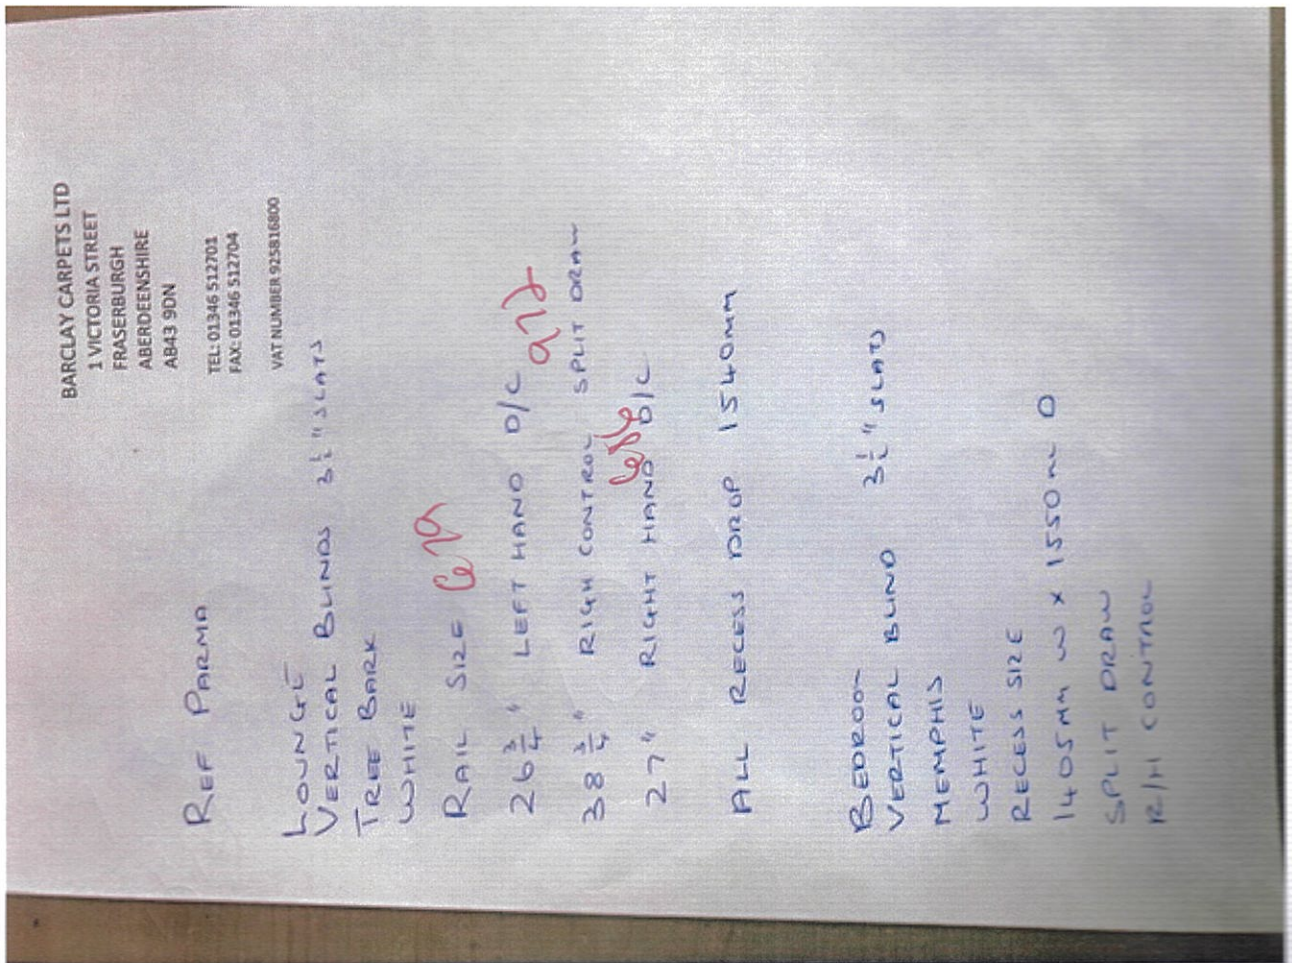 BARCLAY CARPETS LTD
1 VICTORIA STREET
FRASERBURGH
ABERDEENSHIRE
AB43 9DN
TEL: 01346 512701
FAX: 01346 512704
VAT NUMBER 925816800
REF PARMA
LOUNGE
VERTICAL BLINDS 3½" SLATS
TREE BARK
WHITE
RAIL SIZE
26¾" LEFT HAND D/C
38¾" RIGH CONTROL SPLIT DRAW
27" RIGHT HAND D/C
ALL RECESS DROP 1540MM
BEDROOM
VERTICAL BLIND 3½" SLATS
MEMPHIS
WHITE
RECESS SIZE
1405MM W x 1550M D
SPLIT DRAW
R/H CONTROL